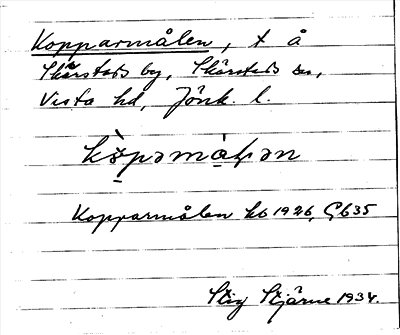 Kopparmålen, t å
Skärstads by, Skärstads sn,
Vista hd, Jönk. l.
Kopparmålen hb 1926, Gb35
Stig Stjärne 1934.